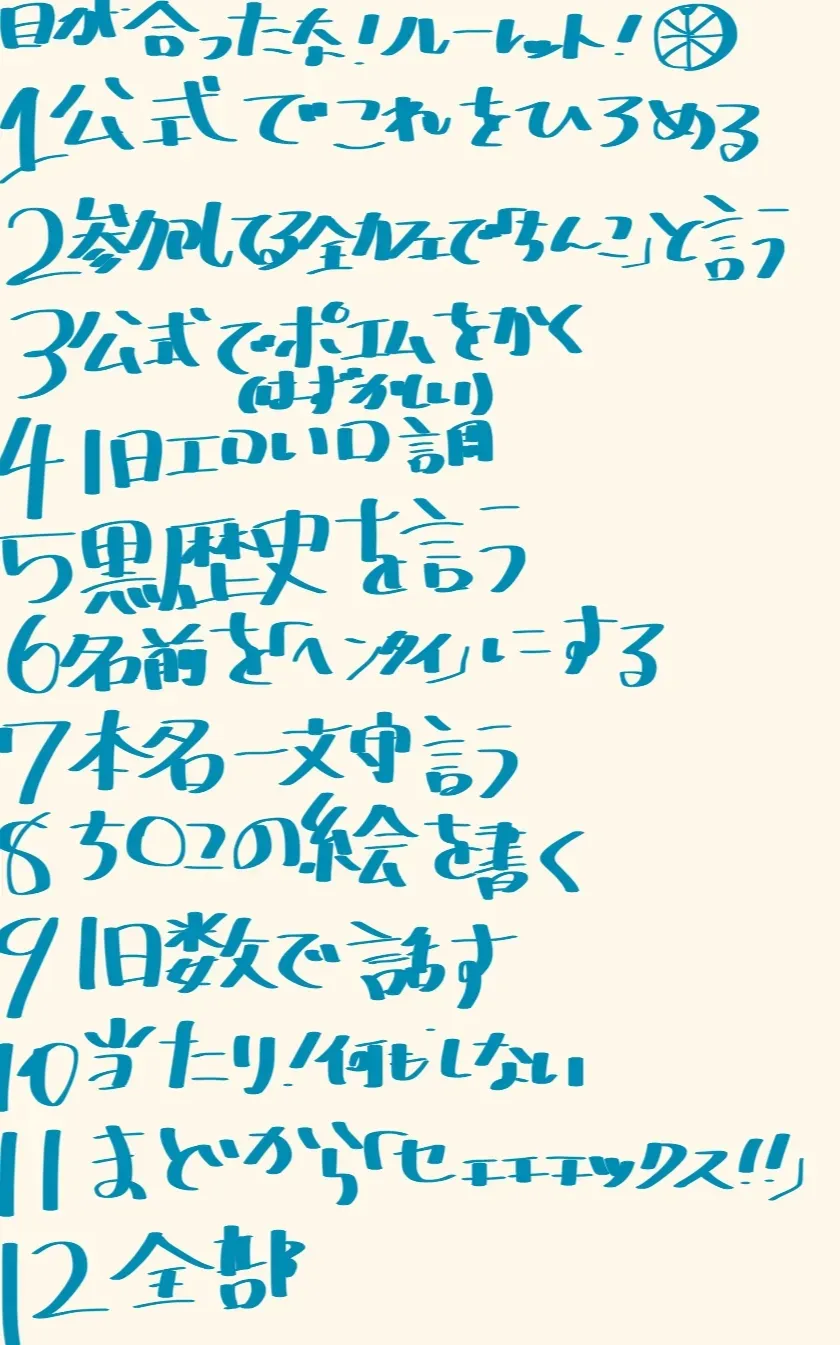 目が合ったな!ルーレット!
1公式でこれをひろめる
2参加してる全カフェで「ちんこ」と言う
3公式でポエムをかく
(はずかしい)
4 1日エロい口調
5黒歴史を言う
6名前を「ヘンタイ」にする
7本名一文字言う
8ち〇この絵を書く
9 1日敬語で話す
10当たり!何もしない
11まどから「セエエエックス!!」
12全部